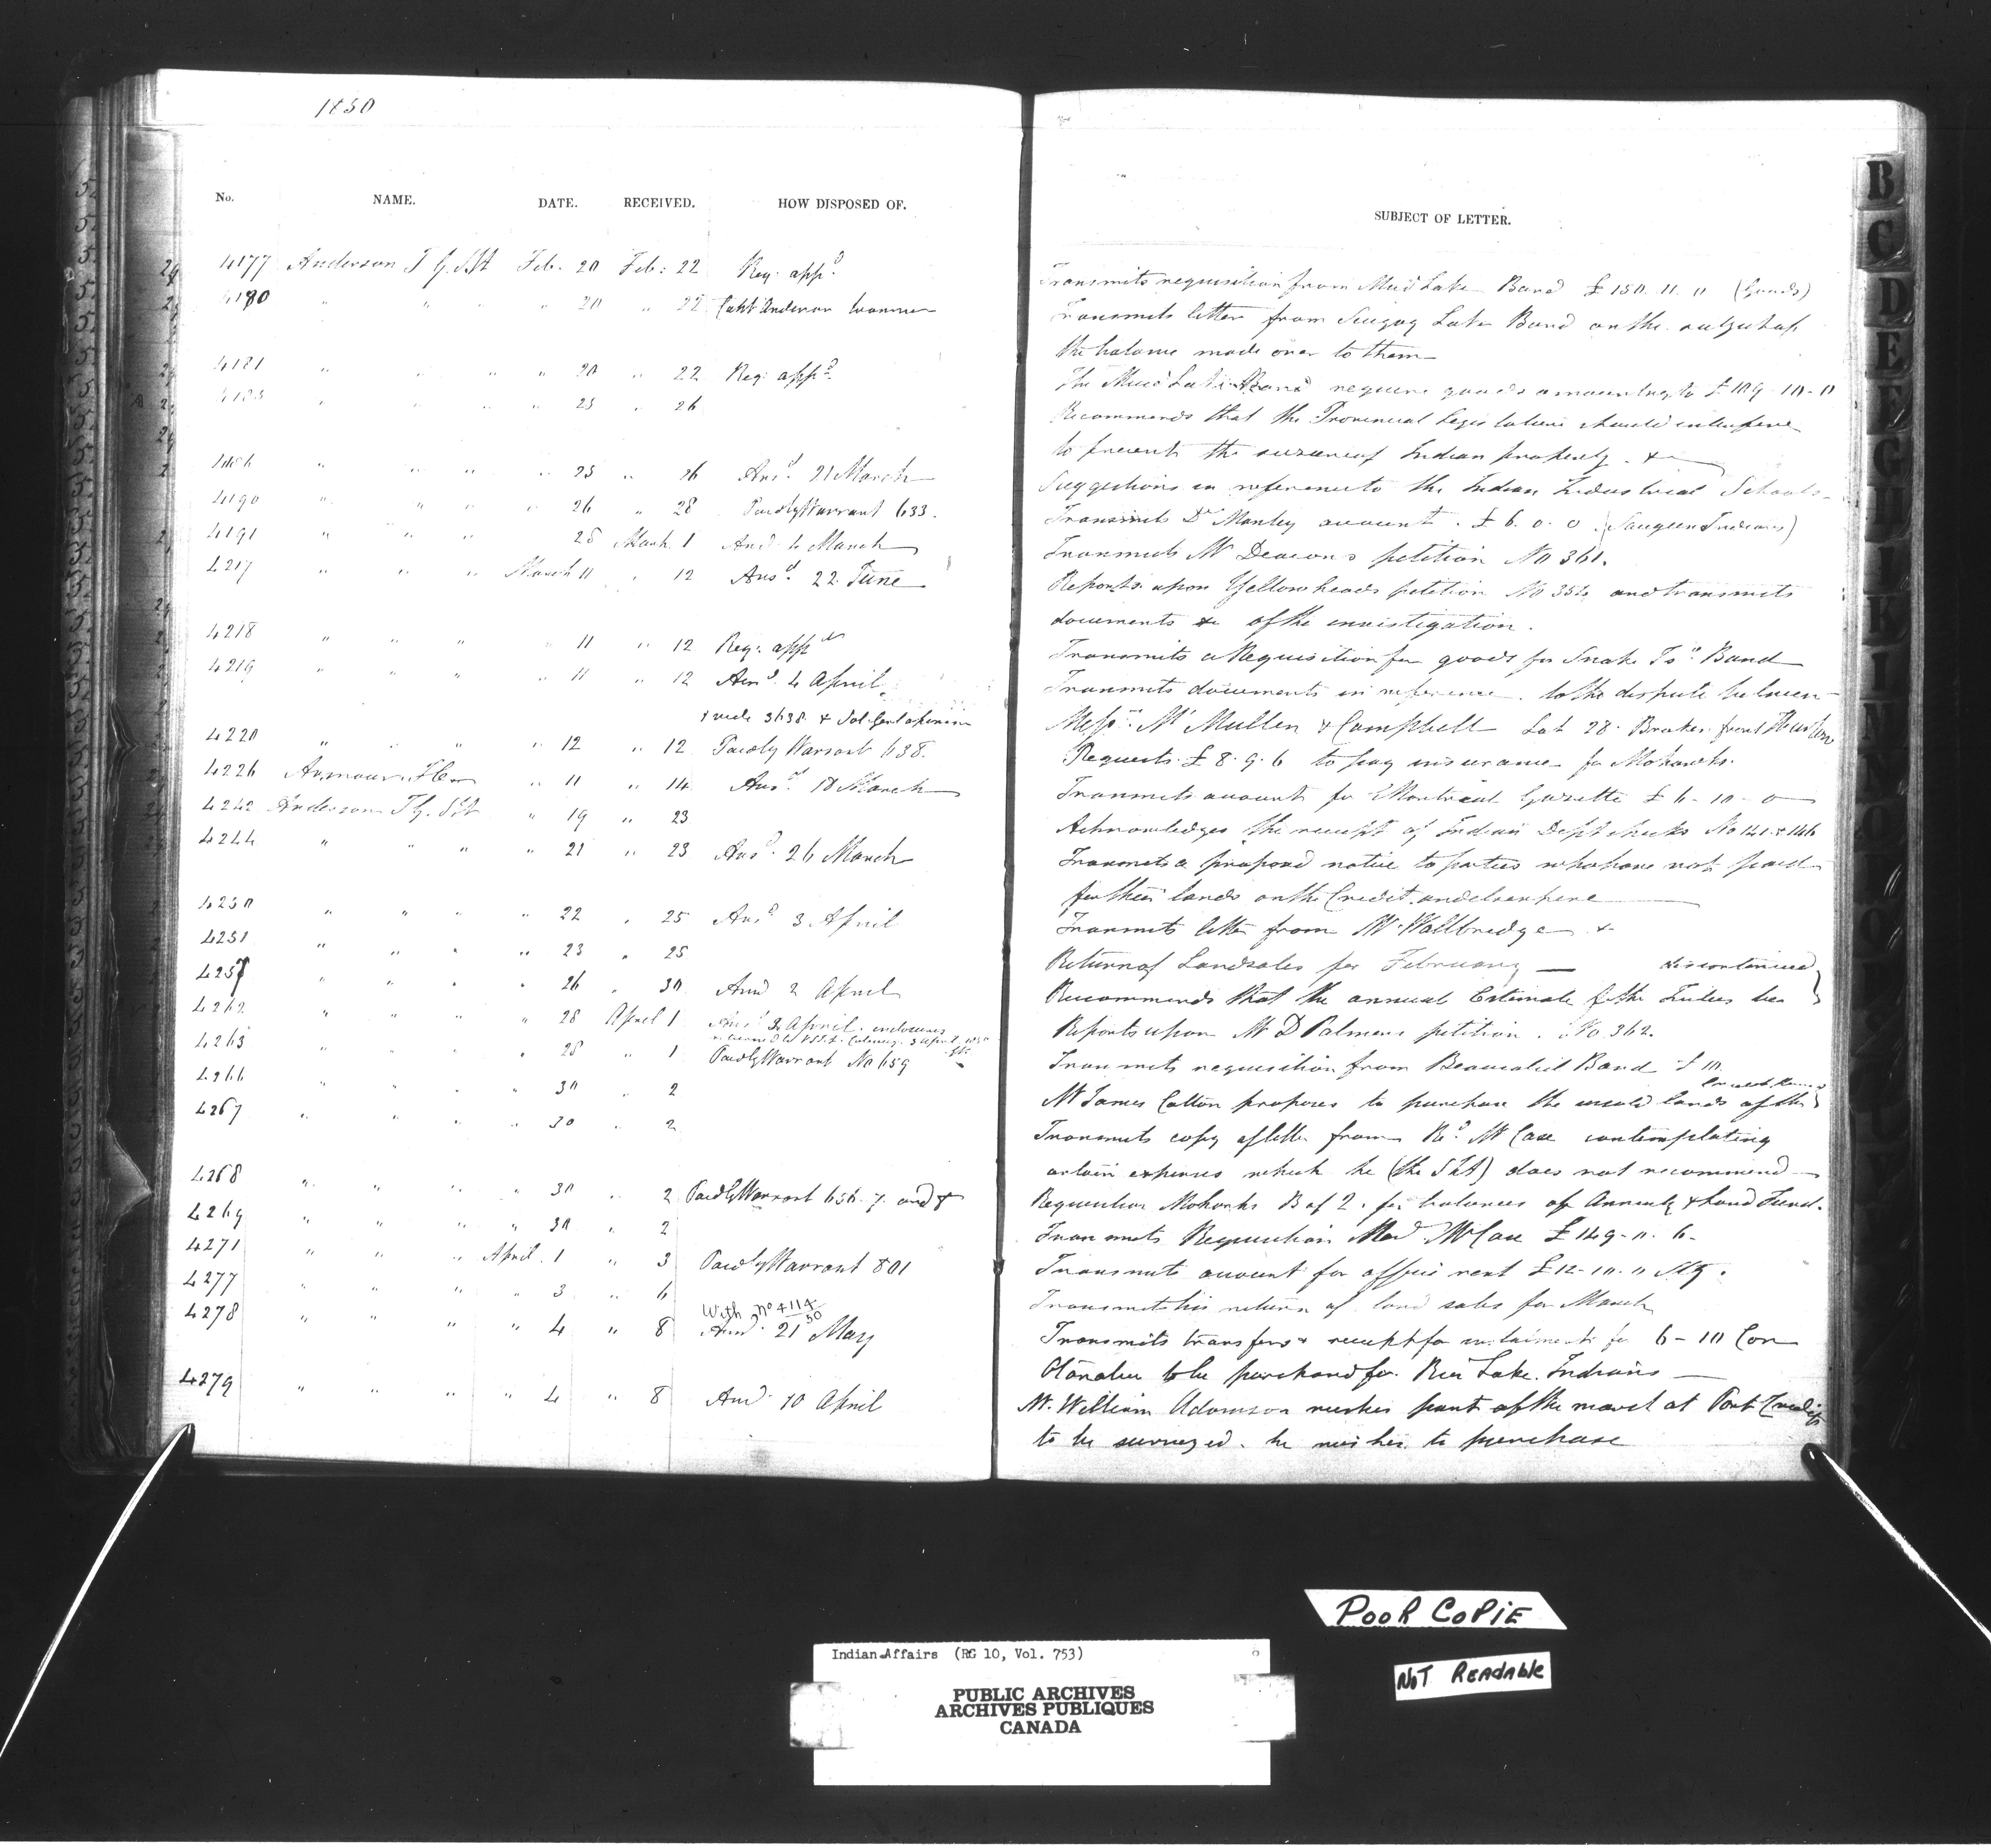 1850
No. NAME. DATE. RECEIVED. HOW DISPOSED OF.
4177 Anderson T G. S.I.A Feb. 20 Feb: 22 Req. appd.
4180 " " " 20 " 22 Capt Anderson
4181 " " " " 20 " 22 Req. appd.
" " " " 25 " 26
" " " " 25 " 26 Ansd. 21 March
4190 " " " 26 " 28 Paid by Warrant 633.
4191 " " " 28 March 1 Ansd 4 March
4217 " " " March 11 " 12 Ansd. 22. June
4218 " " " " 11 " 12 Req. appd
4219 " " " " 11 " 12 Ansd. 4 April
vide 3638 &
4220 " " " " 12 " 12 Paid by Warrant 638.
4226 Armour " 11 " 14 Ansd 18 March
4242 Anderson T G. " 19 " 23
4244 " " " " 21 " 23 Ansd. 26 March
4250 " " " " 22 " 25 Ansd 3 April
4251 " " " " 23 " 25
4257 " " " " 26 " 30 Ansd 2 April
4262 " " " " 28 April 1 Ansd 3 April. enclosures
4263 " " " " 28 " 1 Paid by Warrant No 659
4266 " " " " 30 " 2
4267 " " " " 30 " 2
4268 " " " " 30 " 2 Paid by Warrant 656. 7. and 8
4269 " " " " 30 " 2
4271 " " " April. 1 " 3 Paid by Warrant 801
4277 " " " " 3 " 6
With no 4114/50
4278 " " " " 4 " 8 Ansd. 21 May
4279 " " " " 4 " 8 Ansd. 10 April
SUBJECT OF LETTER.
Transmits requisition from Mud Lake Band £ 150. 11. 0 (Goods)
Transmits letter from Scugog Lake Band on the subject of
the balance made over to them
The Mud Lake Band require goods amounting to £ 109-10-0
Recommends that the Provincial Legislature should interfere
to prevent the seizure of Indian property. &
Suggestions in reference to the Indian Industrial Schools
Transmits Dr Manley account. £ 6. 0. 0 (Saugeen Indians)
Transmits Mr Deacons petition No 361.
Reports upon Yellowheads petition No 354 and transmits
documents &c of the investigation.
Transmits a Requisition for goods for Snake Isd. Band
Transmits documents in reference to the dispute between
Messrs. Mc Mullen & Campbell Lot 28. Broken front
Requests £ 8. 9. 6 to pay insurance for Mohawks.
Transmits account for Montreal Gazette £ 6-10-0
Acknowledges the receipt of Indian Dept checks No 141 & 146
Transmits a proposed notice to parties who have not paid
for their lands on the Credit and elsewhere
Transmits letter from Mr Wallbridge &
Return of Land sales for February —
discontinued
Recommends that the annual Estimate for the Tribes be
Reports upon Mr D Palmers petition. No 362.
Transmits requisition from Beausoleil Band £ 10
Mr James Cotton proposes to purchase the unsold lands of the
Transmits copy of letter from Rd. Mr Case contemplating
certain expenses which he (the SIA) does not recommend
Requisition Mohawks B of 2. for balances of Annuity & Land Fund.
Transmits Requisition Revd Mr Case £149-11. 6-
Transmits account for office rent £12-10. 0 Stg.
Transmits his return of land sales for March
Transmits transfers & receipt for 6-10 Con
Otonabee to be purchased for Rice Lake Indians
Mr. William Adamson wishes part of the marsh at Port Credit
to be surveyed. he wishes to purchase
B
C
D
E
F
G
H
I
K
POOR COPIE
NOT READABLE
Indian Affairs (RG 10, Vol. 753)
PUBLIC ARCHIVES
ARCHIVES PUBLIQUES
CANADA